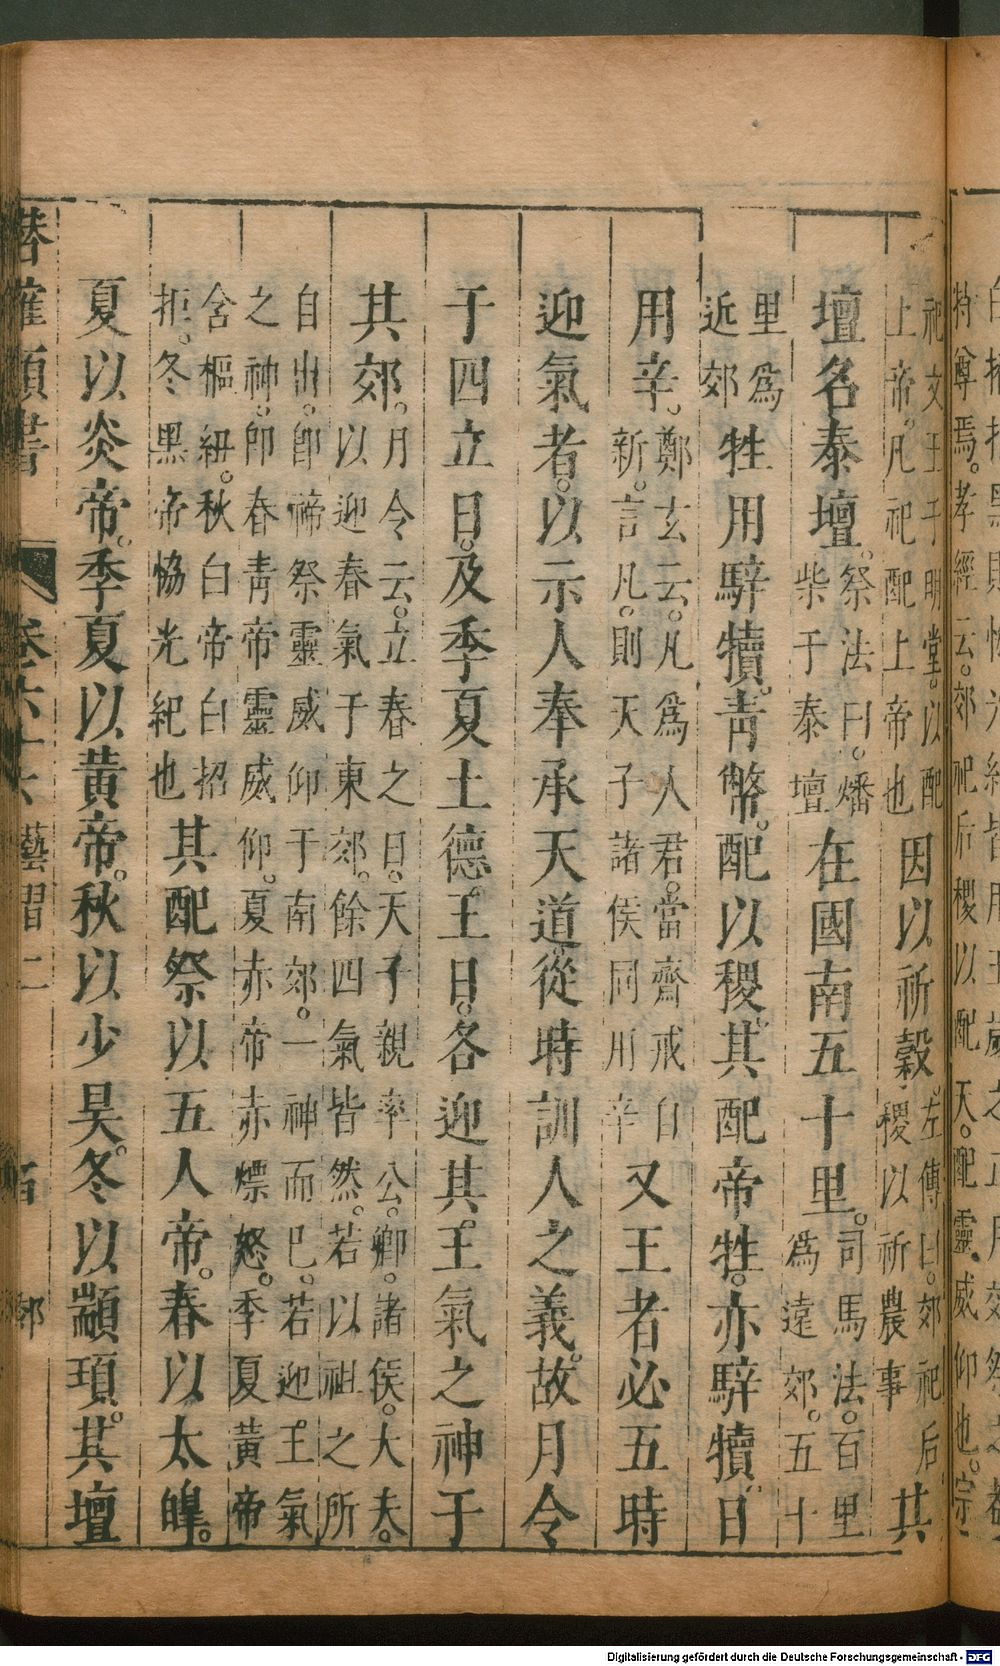 白招拒黑則恊光紀皆用正歲之正月郊祭之
特尊焉。孝經云。郊祀后稷以配天。配靈威仰也。宗
祀文王于明堂。以配
上帝。凡祀配上帝也
因以祈穀
左傳曰。郊祀后
稷以祈農事
其
壇名泰壇。
祭法曰。燔
柴于泰壇
在國南五十里。
司馬法。百里
爲遠郊。五十
里爲
近郊
牲用騂犢。青幣。配以稷。其配帝牲。亦騂犢。日
用辛。
鄭玄云。凡爲人君。當齋戒自
新。言凡。則天子諸侯同用辛
又王者必五時
迎氣者。以示人奉承天道。從時訓人之義。故月令
于四立日。及季夏土德。王日。各迎其。王氣之神于
其郊。
月令云。立春之日。天子親率公。卿。諸侯。大夫。
以迎春氣于東郊。餘四氣皆然。若以祖之所
自出。卽禘祭靈威仰于南郊。一神而已。若迎。王氣
之神。卽春青帝靈威仰。夏赤帝赤熛怒。季夏黃帝
含樞紐。秋白帝白招
拒。冬黑帝恊光紀也
其配祭以五人帝。春以太皡。
夏以炎帝。季夏以黃帝。秋以少昊。冬以顓頊。其壇
潛確類書 卷六十六 藝習二 百 郊
Digitalisierung gefördert durch die Deutsche Forschungsgemeinschaft - DFG